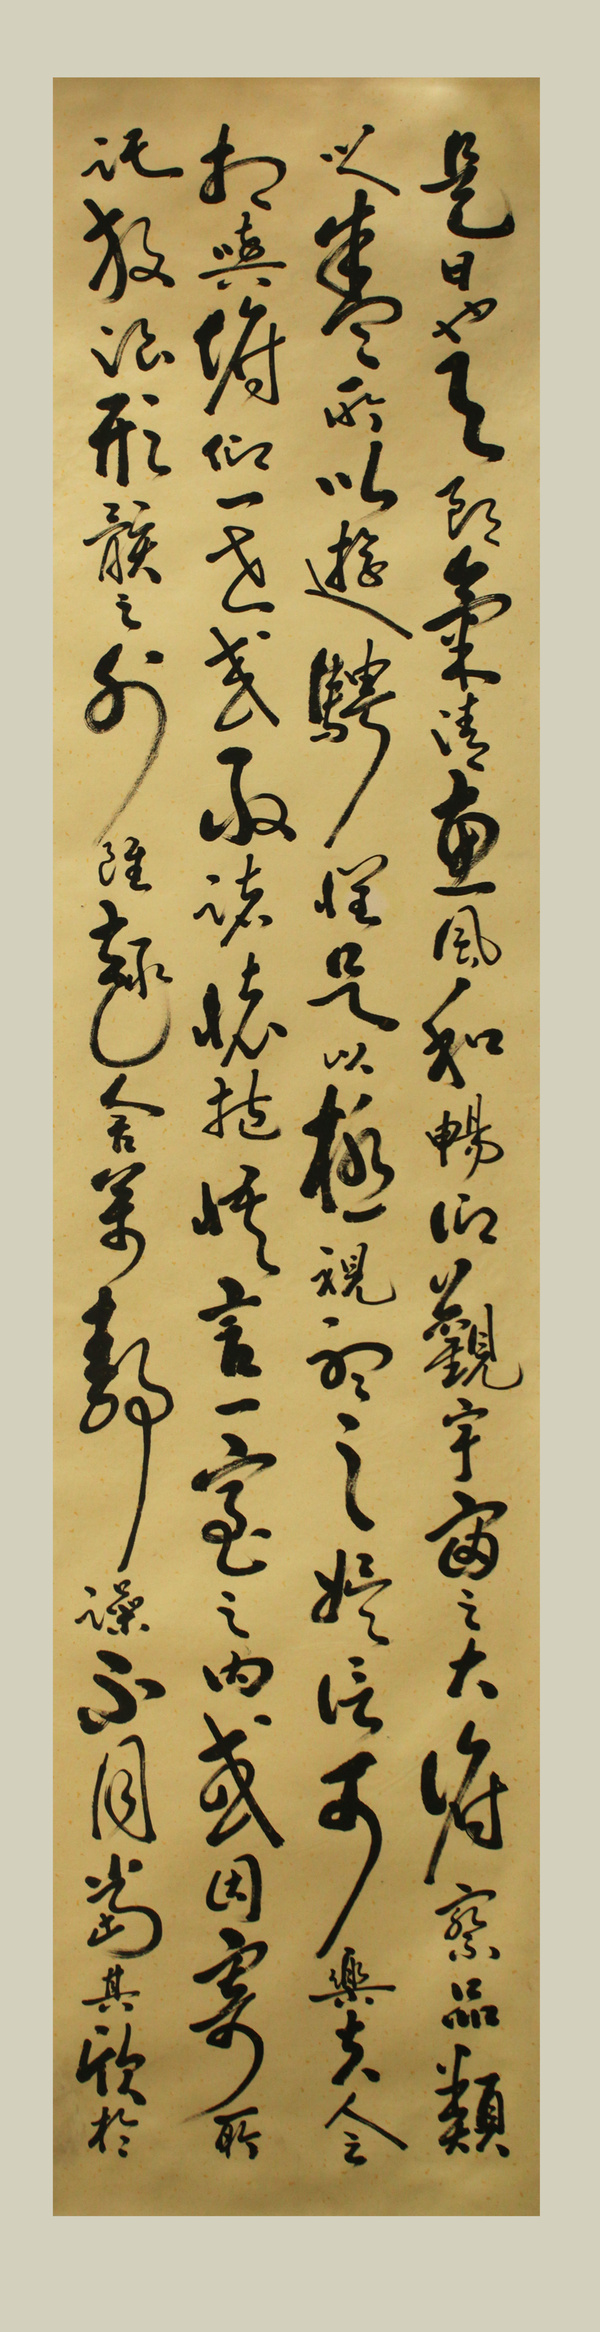 是日也天朗氣清惠風和暢仰觀宇宙之大俯察品類
以盡所以遊騁懷足以極視聽之娛信可樂夫人之
相與俯仰一世或取諸懷抱悟言一室之內或因寄所
託放浪形骸之外雖趣舍萬靜躁不同當其欣於